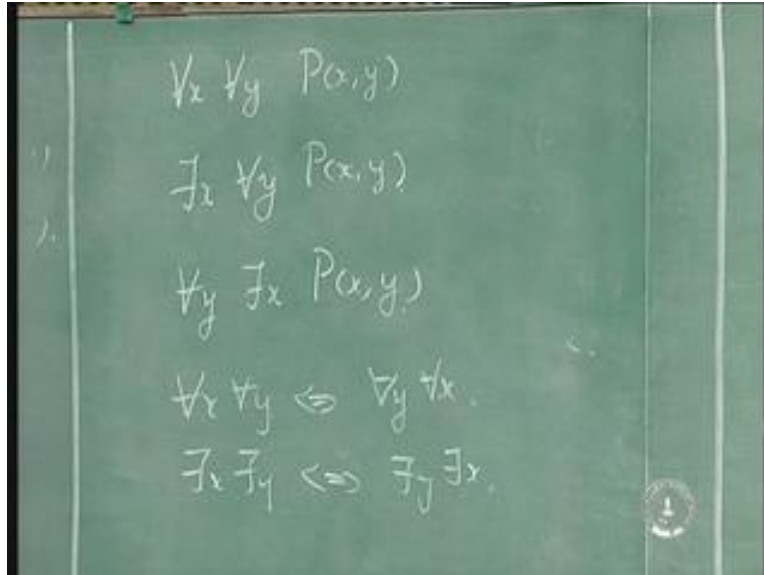 ∀x ∀y P(x,y)
∃x ∀y P(x,y)
∀y ∃x P(x,y)
∀x ∀y ⇔ ∀y ∀x.
∃x ∃y ⇔ ∃y ∃x.